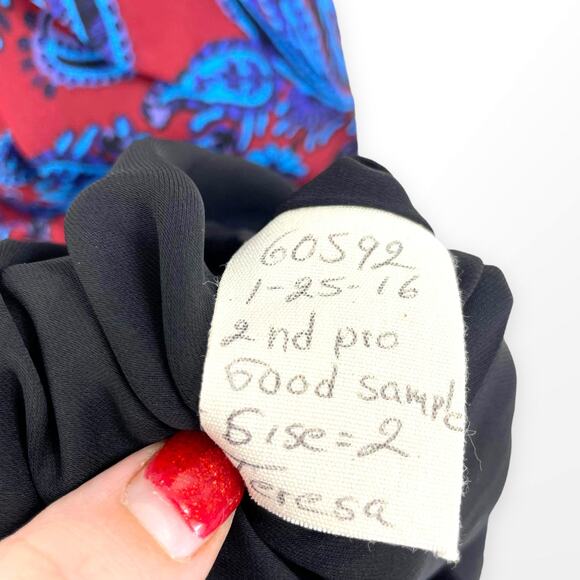 60592
1-25-16
2 nd pro
Good sample
Sise = 2
Teresa